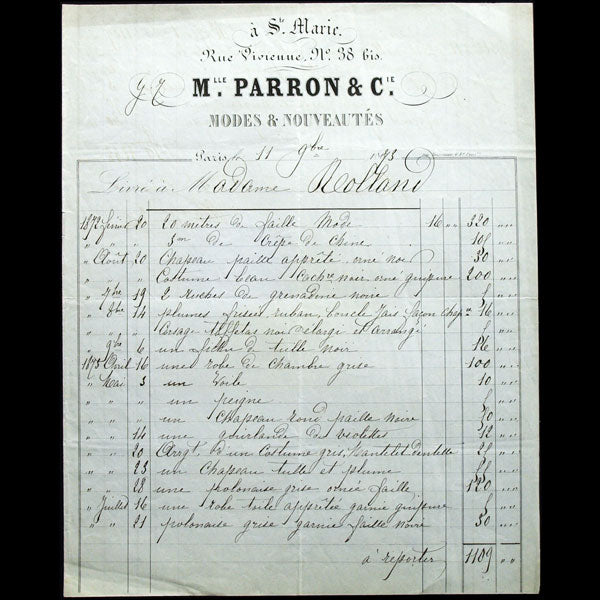 à Ste. Marie.
Rue Vivienne, No. 38 bis.
MLLE. PARRON & CIE.
MODES & NOUVEAUTÉS
Paris, le 11 9bre 1873
Livré à Madame Rolland
1872 février 20 20 mètres de faille Mode 16 „ „ 320 „ „
„ „ 3m de Crêpe de Chine 108 „ „
„ Août 20 Chapeau paille apprêté orné noir 30 „ „
„ „ Costume beau Cachre noir orné guipure 200 „ „
„ 7bre 19 2 Ruches de grenadine noire
„ 8bre 14 plumes frisées, ruban, boucle Jais façon Chap 16 „ „
„ „ Corsage taffetas noir élargi et arrangé
„ 9bre 6 un fichu de tulle noir
1873 Avril 16 une robe de chambre grise 100 „ „
„ Mai 3 un voile 10 „ „
„ un peigne
„ un Chapeau rond paille noire
„ 14 une guirlande de violettes 12 „ „
„ 20 Arrgt. d'un costume gris, Mantelet dentelle
„ 23 un Chapeau tulle et plume
„ 28 une polonaise grise ornée faille 120 „ „
„ Juillet 16 une robe toile apprêtée garnie guipure
„ „ 21 polonaise grise garnie faille noire
à reporter 1109 „ „